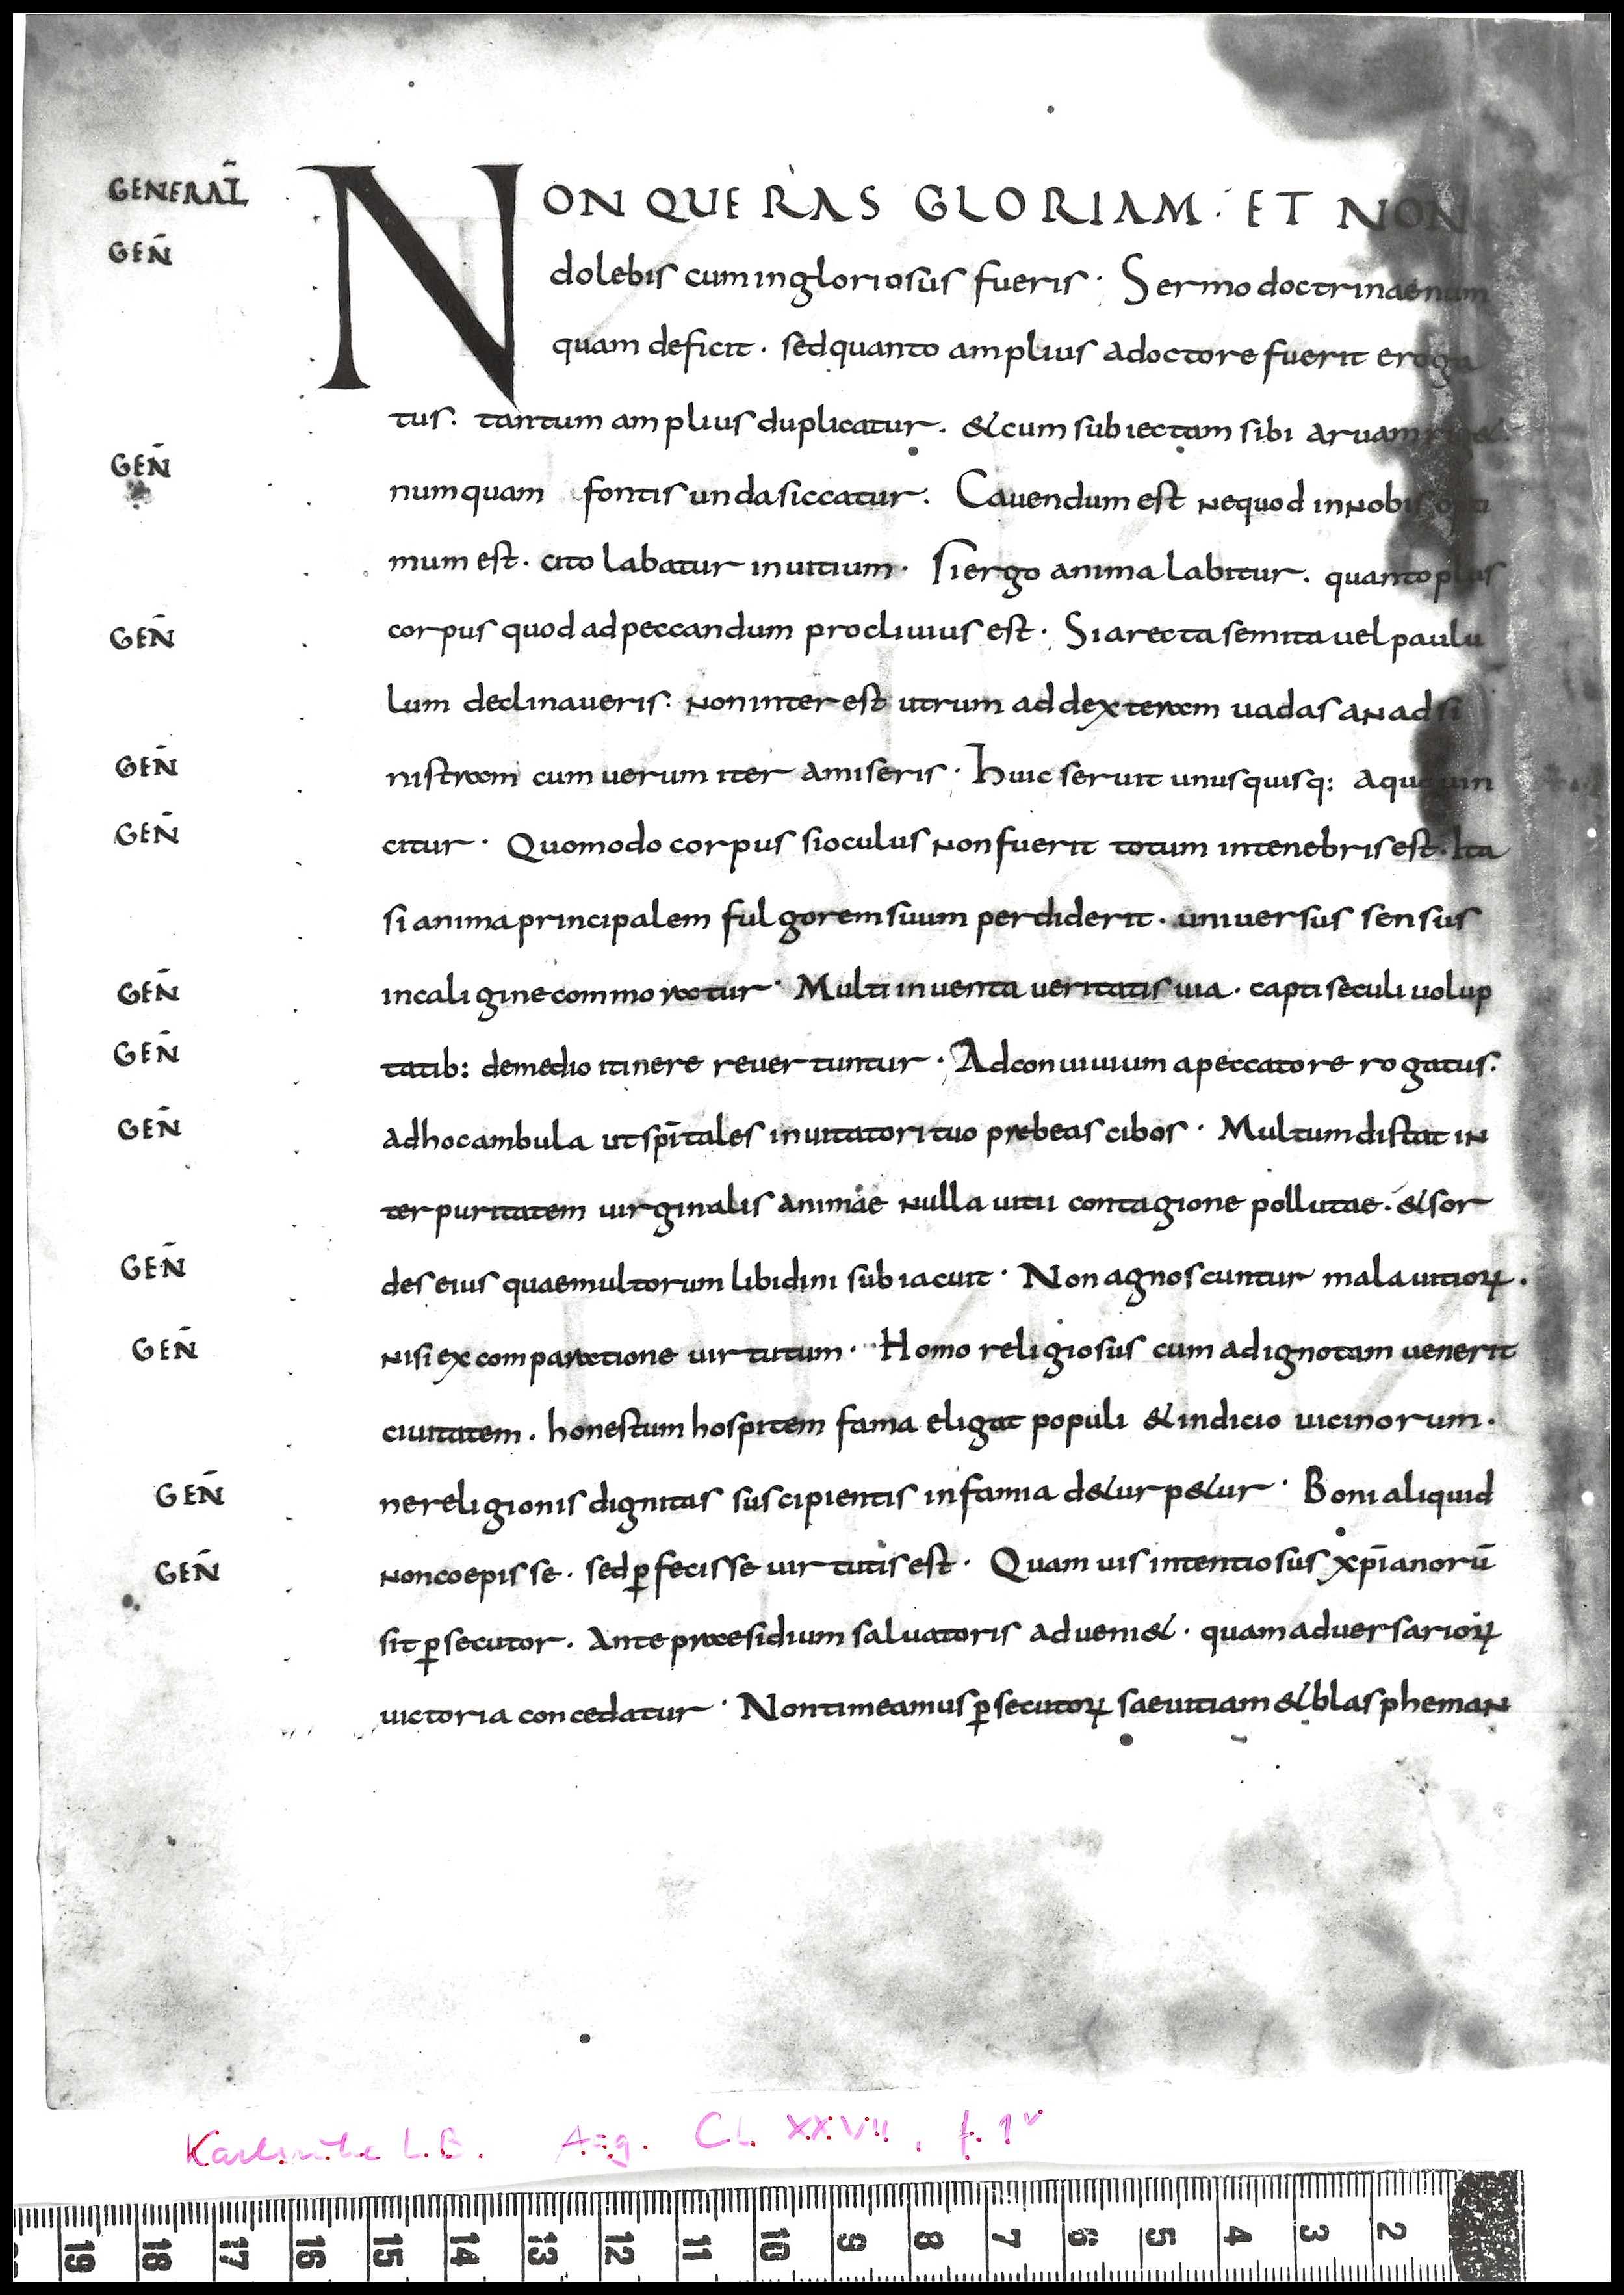 GENERAL̄
NON QUERAS GLORIAM · ET NON
GEN̄
dolebis cum ingloriosus fueris · Sermo doctrinae num
quam deficit · sed quanto amplius a doctore fuerit eroga
tus. tantum amplius duplicatur. & cum subiectam sibi aruam rig&.
GEN̄
numquam fontis unda siccatur. Cauendum est ne quod in nobis opti
mum est · cito labatur in uitium · Si ergo anima labitur. quanto plus
GEN̄
corpus quod ad peccandum procliuius est · Si a recta semita uel paulu
lum declinaueris. non interest utrum ad dexteram uadas an ad si
GEN̄
nistram cum uerum iter amiseris · Huic seruit unusquisq: a quo uin
GEN̄
citur · Quomodo corpus si oculus non fuerit totum in tenebris est · Ita
si anima principalem fulgorem suum perdiderit · universus sensus
GEN̄
in caligine commoratur · Multi inventa ueritatis uia · capti seculi uolup
GEN̄
tatib: de medio itinere revertuntur · Ad conuiuium a peccatore rogatus.
GEN̄
ad hoc ambula ut spītales inuitatori tuo prebeas cibos · Multum distat in
ter puritatem uirginalis animae nulla uitii contagione pollutae · & sor
GEN̄
des eius quae multorum libidini subiacuit · Non agnoscuntur mala uitioꝝ.
GEN̄
nisi ex comparatione uirtutum · Homo religiosus cum ad ignotam uenerit
ciuitatem. honestum hospitem fama eligat populi & indicio uicinorum.
GEN̄
ne religionis dignitas suscipientis infamia d&urp&ur · Boni aliquid
GEN̄
non coepisse · sed ꝑfecisse uirtutis est · Quamuis intentiosus xp̄ianorū
sit ꝑsecutor. Ante praesidium saluatoris adueni& · quam adversarioꝝ
uictoria concedatur · Non timeamus ꝑsecutoꝝ saeuitiam & blaspheman
Karlsruhe L.B. Aug. CLXXVII, f. 1v
19 18 17 16 15 14 13 12 11 10 9 8 7 6 5 4 3 2